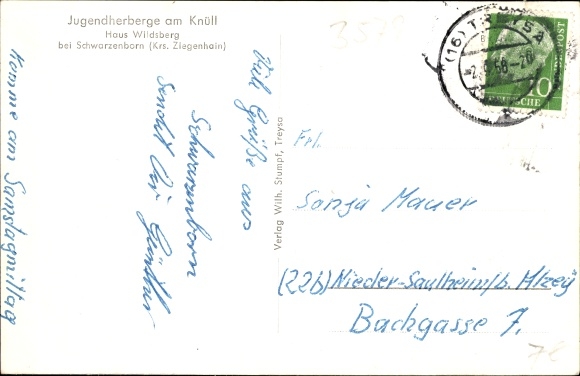 Jugendherberge am Knüll
Haus Wildsberg
bei Schwarzenborn (Krs. Ziegenhain)
Komme am Samstagmittag
Viele Grüße aus
Schwarzenborn
sendet Dir Günther
Verlag Wilh. Stumpf, Treysa
(16) TREYSA
-2.9.56-20
10
DEUTSCHE
POST
Frl.
Sonja Mauer
(22b) Nieder-Saulheim/b. Alzey
Bachgasse 7.